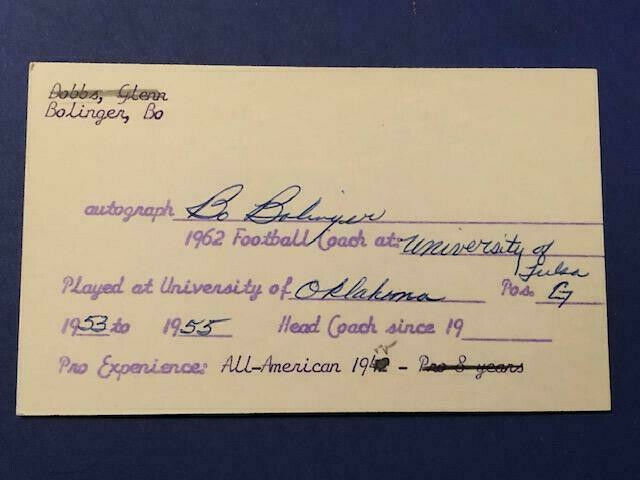 Dobbs, Glenn
Bolinger, Bo
autograph Bo Bolinger
1962 Football Coach at: University of Tulsa
Played at University of Oklahoma Pos. G
1953 to 1955 Head Coach since 19
Pro Experience: All-American 19 - Pro 8 years